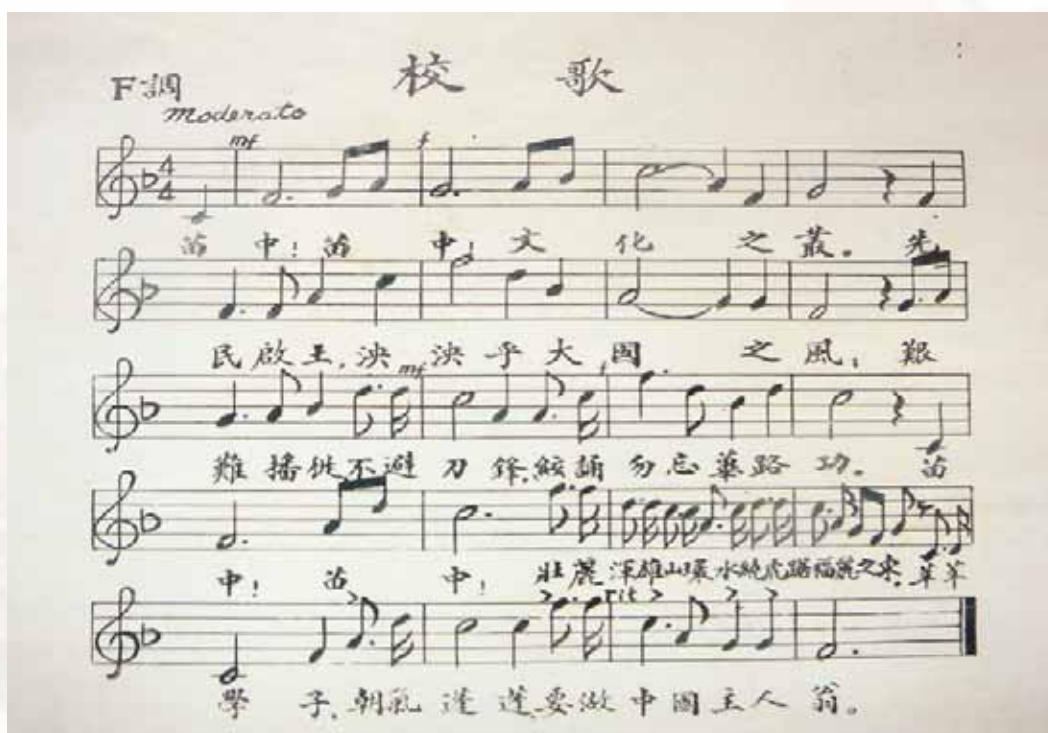 校歌
F調
moderato
mf f
4 4
苗中!苗中!文化之叢。先
民啟土,泱泱乎大國之風;艱
mf f
難播徙不避刀鋒,絃誦勿忘蓽路功。苗
中!苗中!壯麗渾雄山環水繞虎踞之宋,莘莘
rit
學子,朝氣蓬蓬,要做中國主人翁。